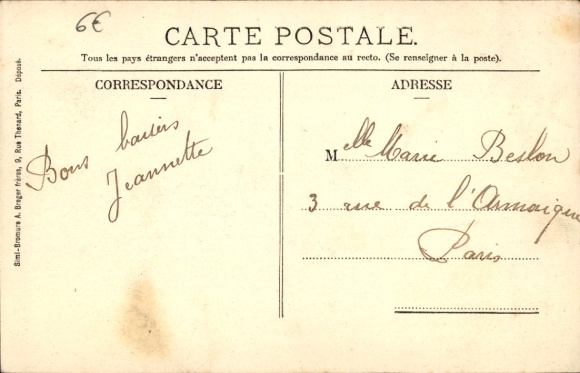 6€
CARTE POSTALE.
Tous les pays étrangers n'acceptent pas la correspondance au recto. (Se renseigner à la poste).
CORRESPONDANCE
Bons baisers
Jeannette
ADRESSE
Melle Marie Beslon
3 rue de l'Armorique
Paris
Simi-Bromure A. Breger frères, 9, Rue Thenard, Paris. Déposé.